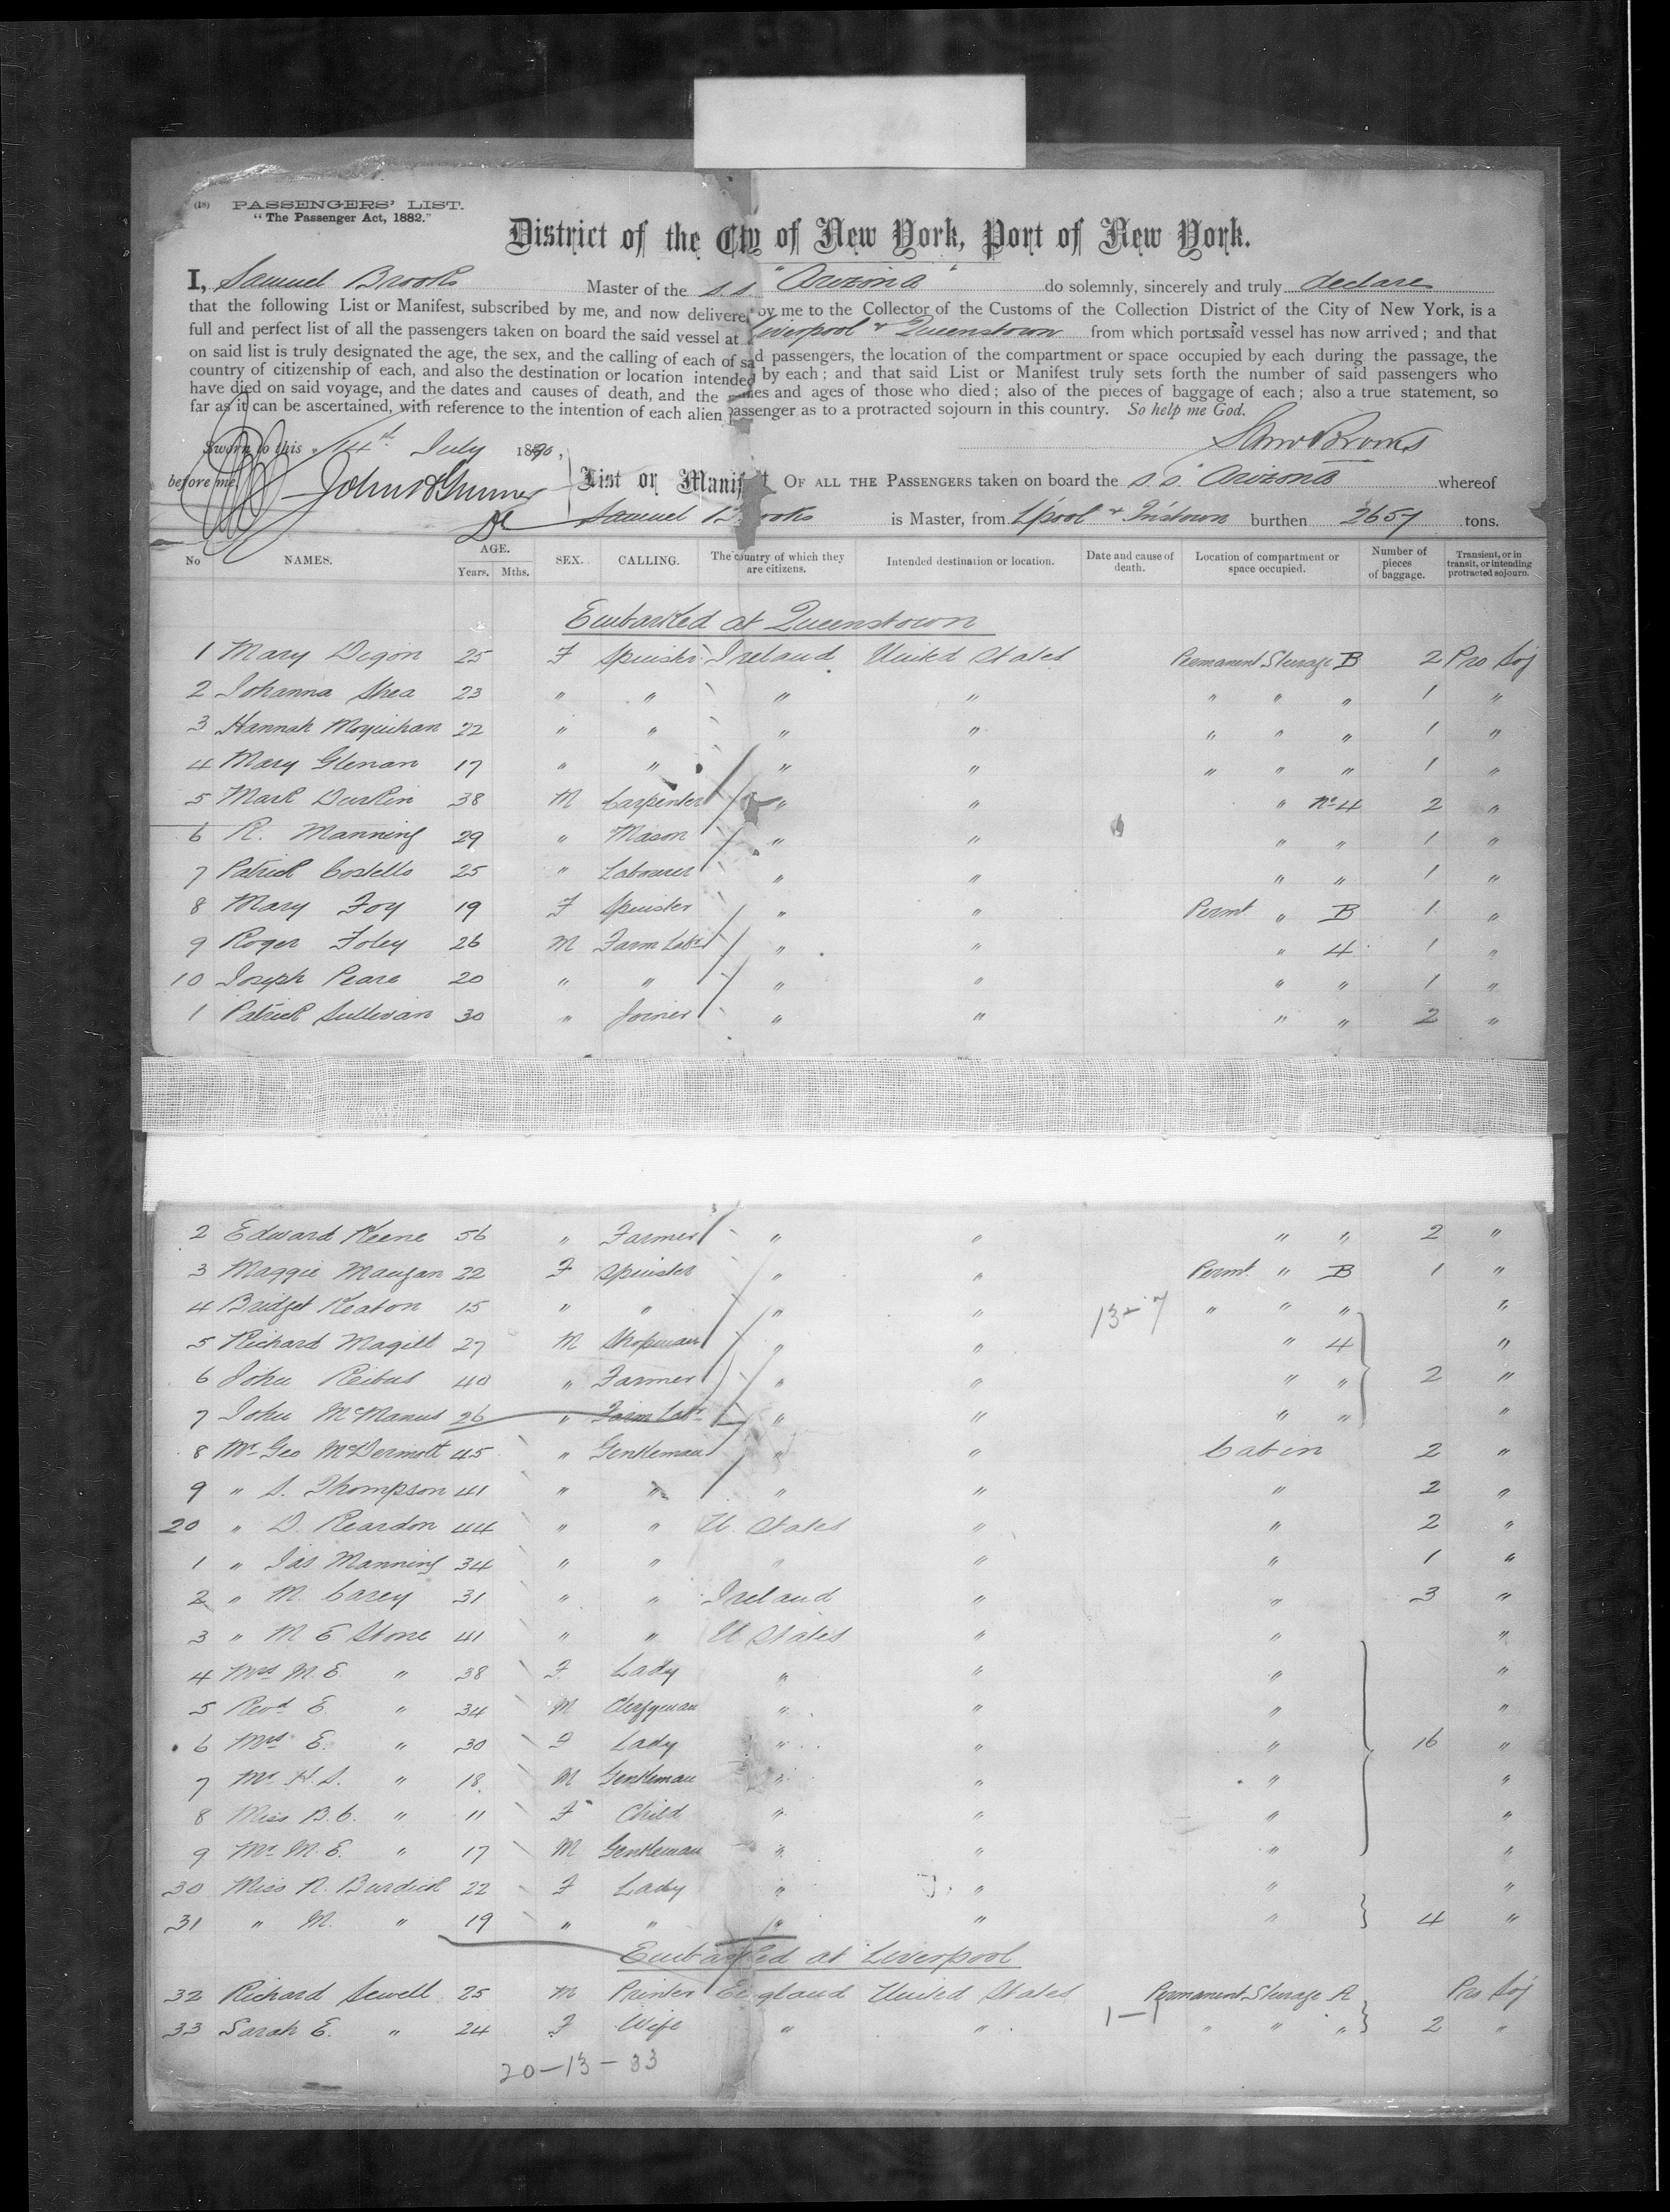 (18) PASSENGERS' LIST.
"The Passenger Act, 1882."
District of the City of New York, Port of New York.
I, Samuel Brooks Master of the s.s. "Arizona" do solemnly, sincerely and truly declare
that the following List or Manifest, subscribed by me, and now delivered by me to the Collector of the Customs of the Collection District of the City of New York, is a
full and perfect list of all the passengers taken on board the said vessel at Liverpool & Queenstown from which ports said vessel has now arrived; and that
on said list is truly designated the age, the sex, and the calling of each of said passengers, the location of the compartment or space occupied by each during the passage, the
country of citizenship of each, and also the destination or location intended by each; and that said List or Manifest truly sets forth the number of said passengers who
have died on said voyage, and the dates and causes of death, and the names and ages of those who died; also of the pieces of baggage of each; also a true statement, so
far as it can be ascertained, with reference to the intention of each alien passenger as to a protracted sojourn in this country. So help me God.
Sworn to this 14th July 1890, Saml Brooks
before me List or Manifest OF ALL THE PASSENGERS taken on board the s.s. Arizona whereof
Samuel Brooks is Master, from L'pool & Q'nstown burthen 2657 tons.
No NAMES. AGE. Years. Mths. SEX. CALLING. The country of which they are citizens. Intended destination or location. Date and cause of death. Location of compartment or space occupied. Number of pieces of baggage. Transient, or in transit, or intending protracted sojourn.
Embarked at Queenstown
1 Mary Digon 25 F Spinster Ireland United States Permanent Steerage B 2 Pro Soj
2 Johanna Shea 23 " " " " " " " 1 "
3 Hannah Moynihan 22 " " " " " " " 1 "
4 Mary Glenan 17 " " " " " " " 1 "
5 Mark Durkin 38 M Carpenter " " " No 4 2 "
6 R. Manning 29 " Mason " " " " 1 "
7 Patrick Costello 25 " Labourer " " " " 1 "
8 Mary Foy 19 F Spinster " " Permt " B 1 "
9 Roger Foley 26 M Farm Labr " " " 4 1 "
10 Joseph Peare 20 " " " " " " 1 "
1 Patrick Sullivan 30 " Joiner " " " " 2 "
2 Edward Keene 56 " Farmer " " " " 2 "
3 Maggie Mangan 22 F Spinster " " Permt. " B 1 "
4 Bridget Keaton 15 " " " " 13-7 " " " "
5 Richard Magill 27 M Shopman " " " 4 "
6 John Reibus 40 " Farmer " " " " 2 "
7 John McManus 26 " Farm Labr " " " " "
8 Mr Geo McDermott 45 " Gentleman " " Cabin 2 "
9 " S. Thompson 41 " " " " " 2 "
20 " D. Reardon 44 " " U. States " " 2 "
1 " Jas Manning 34 " " " " " 1 "
2 " M. Carey 31 " " Ireland " " 3 "
3 " M E Stone 41 " " U States " " "
4 Mrs M. E. " 38 F Lady " " " "
5 Revd E. " 34 M Clergyman " " " "
6 Mrs E. " 30 F Lady " " " 16 "
7 Mr H. S. " 18 M Gentleman " " " "
8 Miss B. C. " 11 F Child " " " "
9 Mr M. E. " 17 M Gentleman " " " "
30 Miss N. Burdick 22 F Lady " " " "
31 " M. " 19 " " " " " 4 "
Embarked at Liverpool
32 Richard Sewell 25 M Printer England United States Permanent Steerage A Pro Soj
33 Sarah E. " 24 F Wife " " 1-7 " " " 2 "
20-13-33